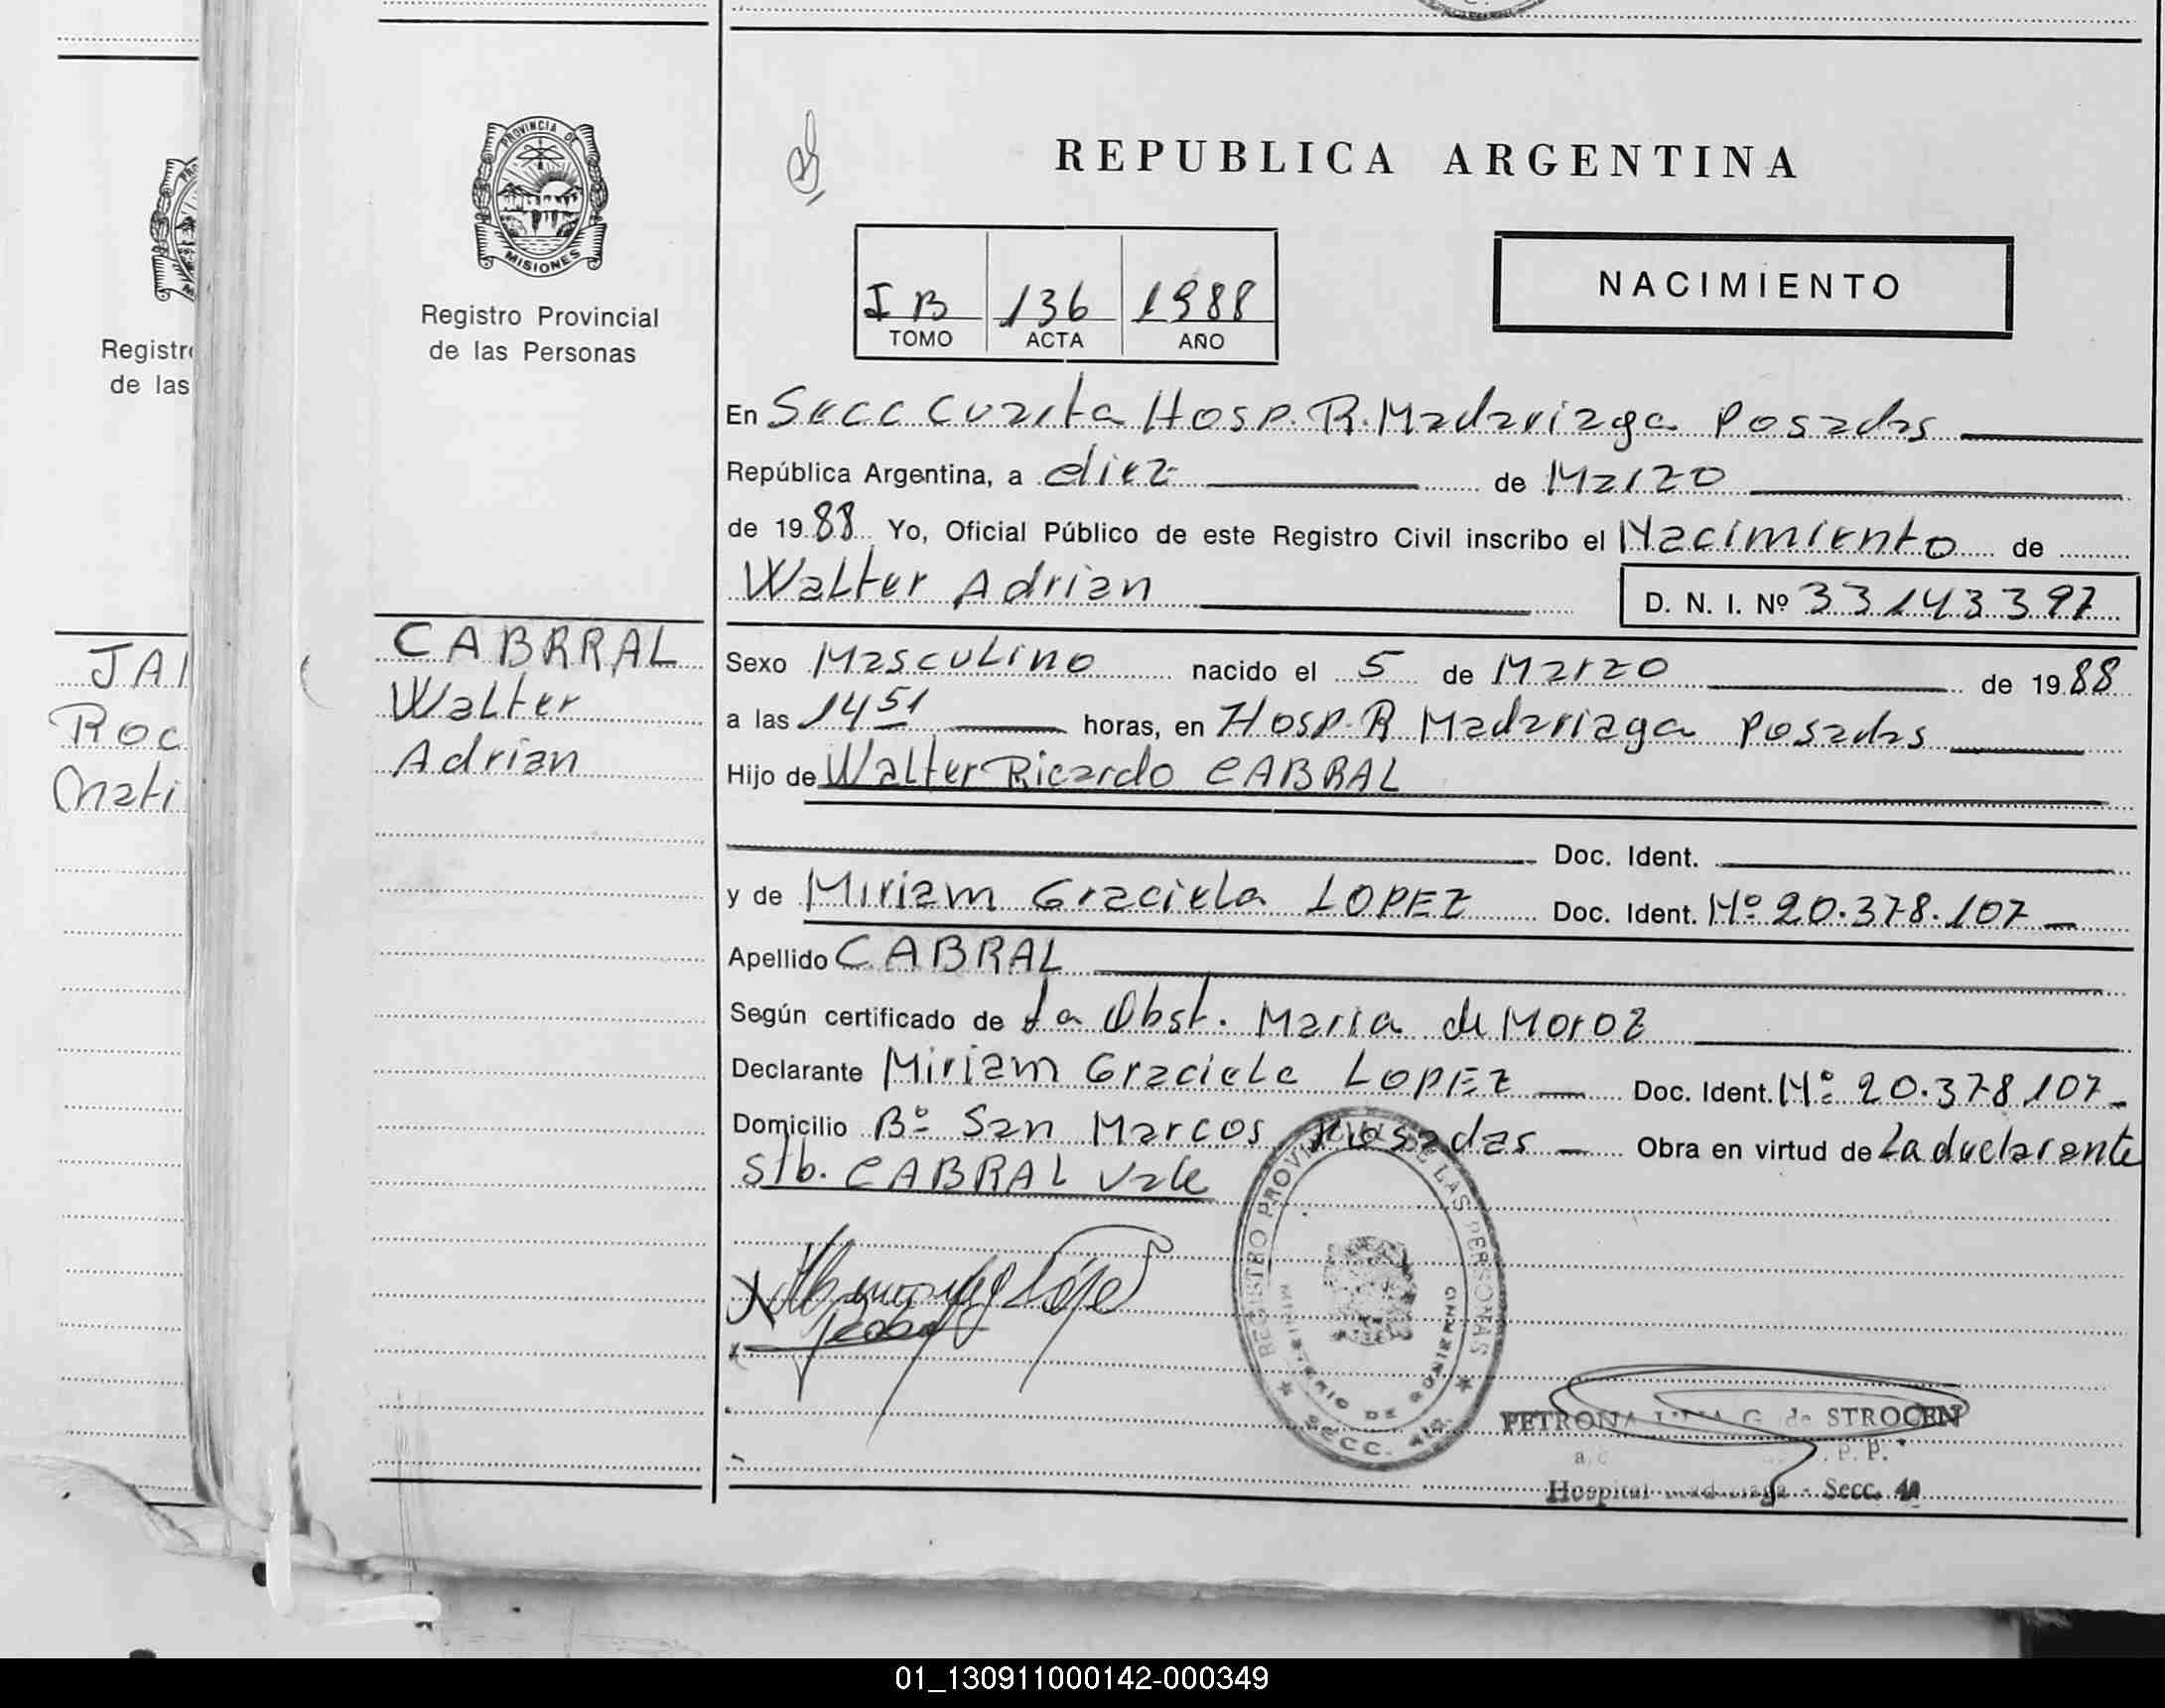 PROVINCIA DE
MISIONES
Registro Provincial
de las Personas
Registr
de las
JA
Roc
Mati
CABRRAL
Walter
Adrian
REPUBLICA ARGENTINA
NACIMIENTO
I B 136 1988
TOMO ACTA AÑO
En Secc Cuarta Hosp. R. Madariaga Posadas
República Argentina, a diez de Marzo
de 19 88 Yo, Oficial Público de este Registro Civil inscribo el Nacimiento de
Walter Adrian D. N. I. Nº 33143397
Sexo Masculino nacido el 5 de Marzo de 19 88
a las 14 51 horas, en Hosp. R Madariaga Posadas
Hijo de Walter Ricardo CABRAL
Doc. Ident.
y de Miriam Graciela LOPEZ Doc. Ident. Nº 20.378.107
Apellido CABRAL
Según certificado de La Obst. Maria de Moroz
Declarante Miriam Graciela LOPEZ Doc. Ident. Nº 20.378.107
Domicilio Bº San Marcos Posadas Obra en virtud de La declarante
S/b. CABRAL Vale
REGISTRO PROVINCIAL DE LAS PERSONAS
MINISTERIO DE GOBIERNO
SECC. 4ta.
PETRONA G. de STROCEN
P. P.
Hospital Madariaga - Secc. 4a
01_130911000142-000349